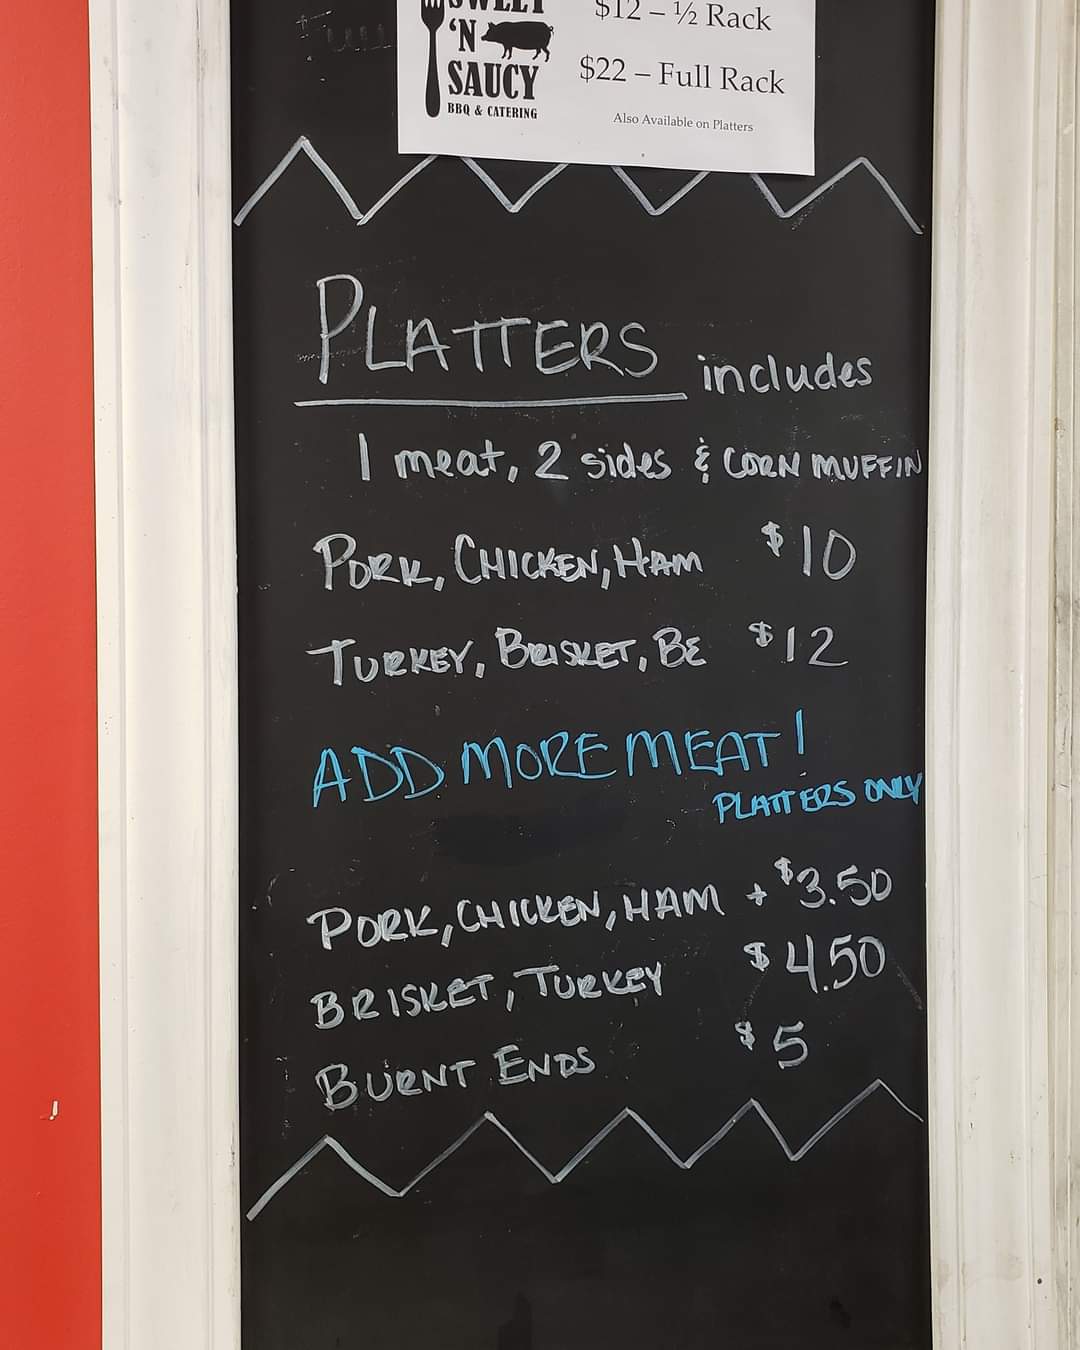 SWEET
'N
SAUCY
BBQ & CATERING
$12 – ½ Rack
$22 – Full Rack
Also Available on Platters
PLATTERS includes
1 meat, 2 sides & CORN MUFFIN
PORK, CHICKEN, HAM $10
TURKEY, BRISKET, BE $12
ADD MORE MEAT!
PLATTERS ONLY
PORK, CHICKEN, HAM + $3.50
BRISKET, TURKEY $4.50
BURNT ENDS $5